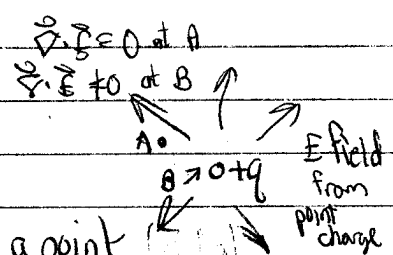 ∇⃗·E⃗ = 0 at A
∇⃗·E⃗ ≠0 at B
A
B → 0+q
E field
from
point
charge
a point